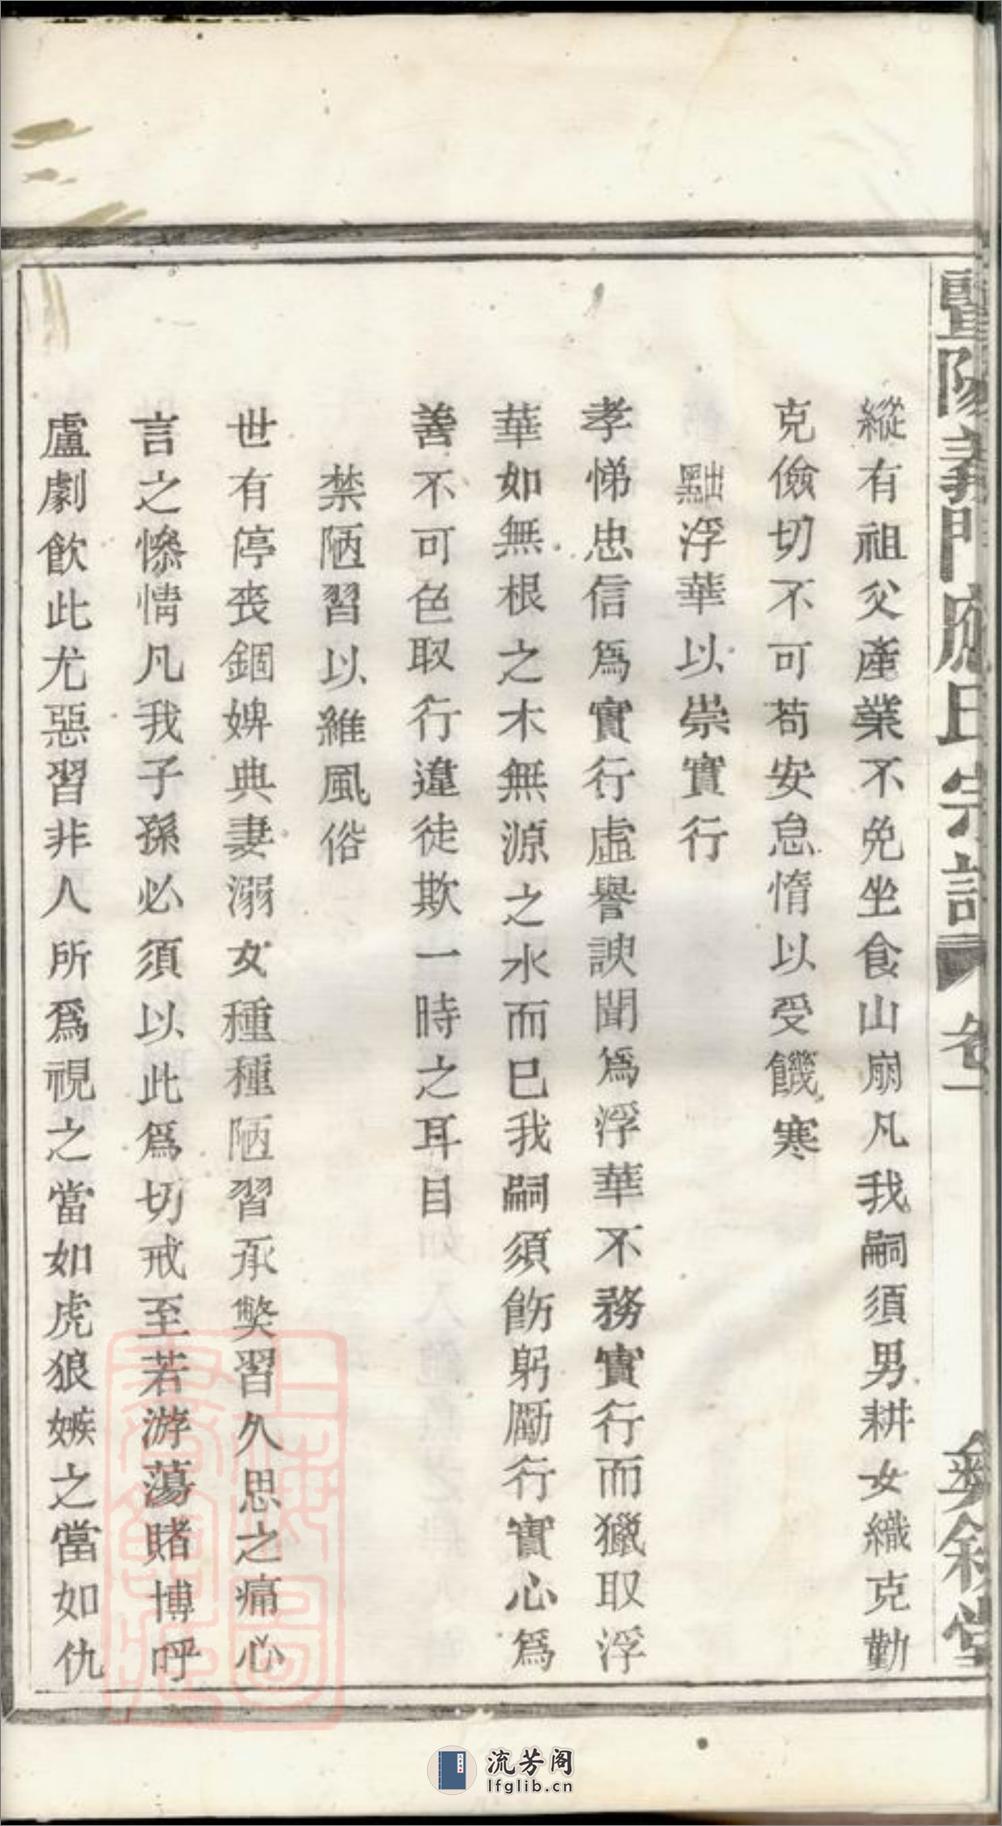 暨陽義門應氏宗譜 卷一 彝叙堂
縱有祖父產業不免坐食山崩凡我嗣須男耕女織克勤
克儉切不可苟安怠惰以受饑寒
黜浮華以崇實行
孝悌忠信爲實行虛譽諛聞爲浮華不務實行而獵取浮
華如無根之木無源之水而已我嗣須飭躬勵行實心爲
善不可色取行違徒欺一時之耳目
禁陋習以維風俗
世有停喪錮婢典妻溺女種種陋習承獘習久思之痛心
言之慘情凡我子孫必須以此爲切戒至若游蕩賭博呼
盧劇飲此尤惡習非人所爲視之當如虎狼嫉之當如仇
上海圖書館藏
流芳阁
lfglib.cn